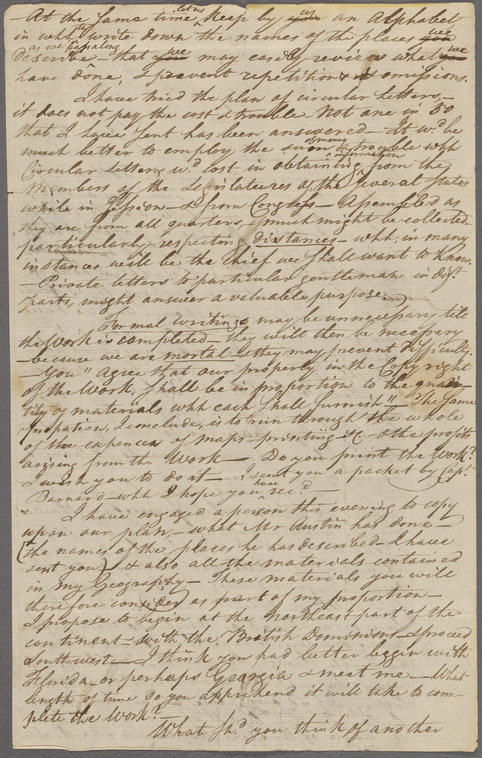 At the same time, let us keep by us an Alphabet,
in whh write down the names of the places we
describe as we pass along – that we may easily review what we
have done, & prevent repetitions & omissions.
I have tried the plan of circular letters –
it does not pay the cost & trouble. Not one in 50
that I have sent has been answered – It wd be
much better to employ the money & trouble whh
Circular letters wd cost, in obtaining information from the
Members of the Legislatures of the several States
while in session – & from Congress – Assembled as
they are from all quarters, much might be collected
particularly respecting distances – whh, in many
instances will be the chief we shall want to know.
– Private letters to particular gentlemen in diffт
parts, might answer a valuable purpose.
Formal writings may be unnecessary till
the work is completed – they will then be necessary
– because we are mortal – & they may prevent difficulty.
– You "agree that our property in the Copy right
of the Work, shall be in proportion to the quan-
tity of materials whh each shall furnish" – The same
proportion, I conclude, is to run through the whole
of the expences of maps – printing – &c – & the profits
arising from the Work – Do you print the Work?
I wish you to do it – I sent you a packet by Capt
Barnard – whh I hope you have recd –
I have engaged a person this evening to copy
upon our plan, – what Mr Austin has done –
(the names of the places he has described I have
sent you) & also all the materials contained
in my Geography – These materials you will
therefore consider as part of my proportion –
I propose to begin at the northeast part of the
continent – with the British Dominions – & proceed
southwest – I think you had better begin with
Florida or perhaps Georgia & meet me – What
length of time do you apprehend it will take to com-
plete the Work? –
What shd you think of another